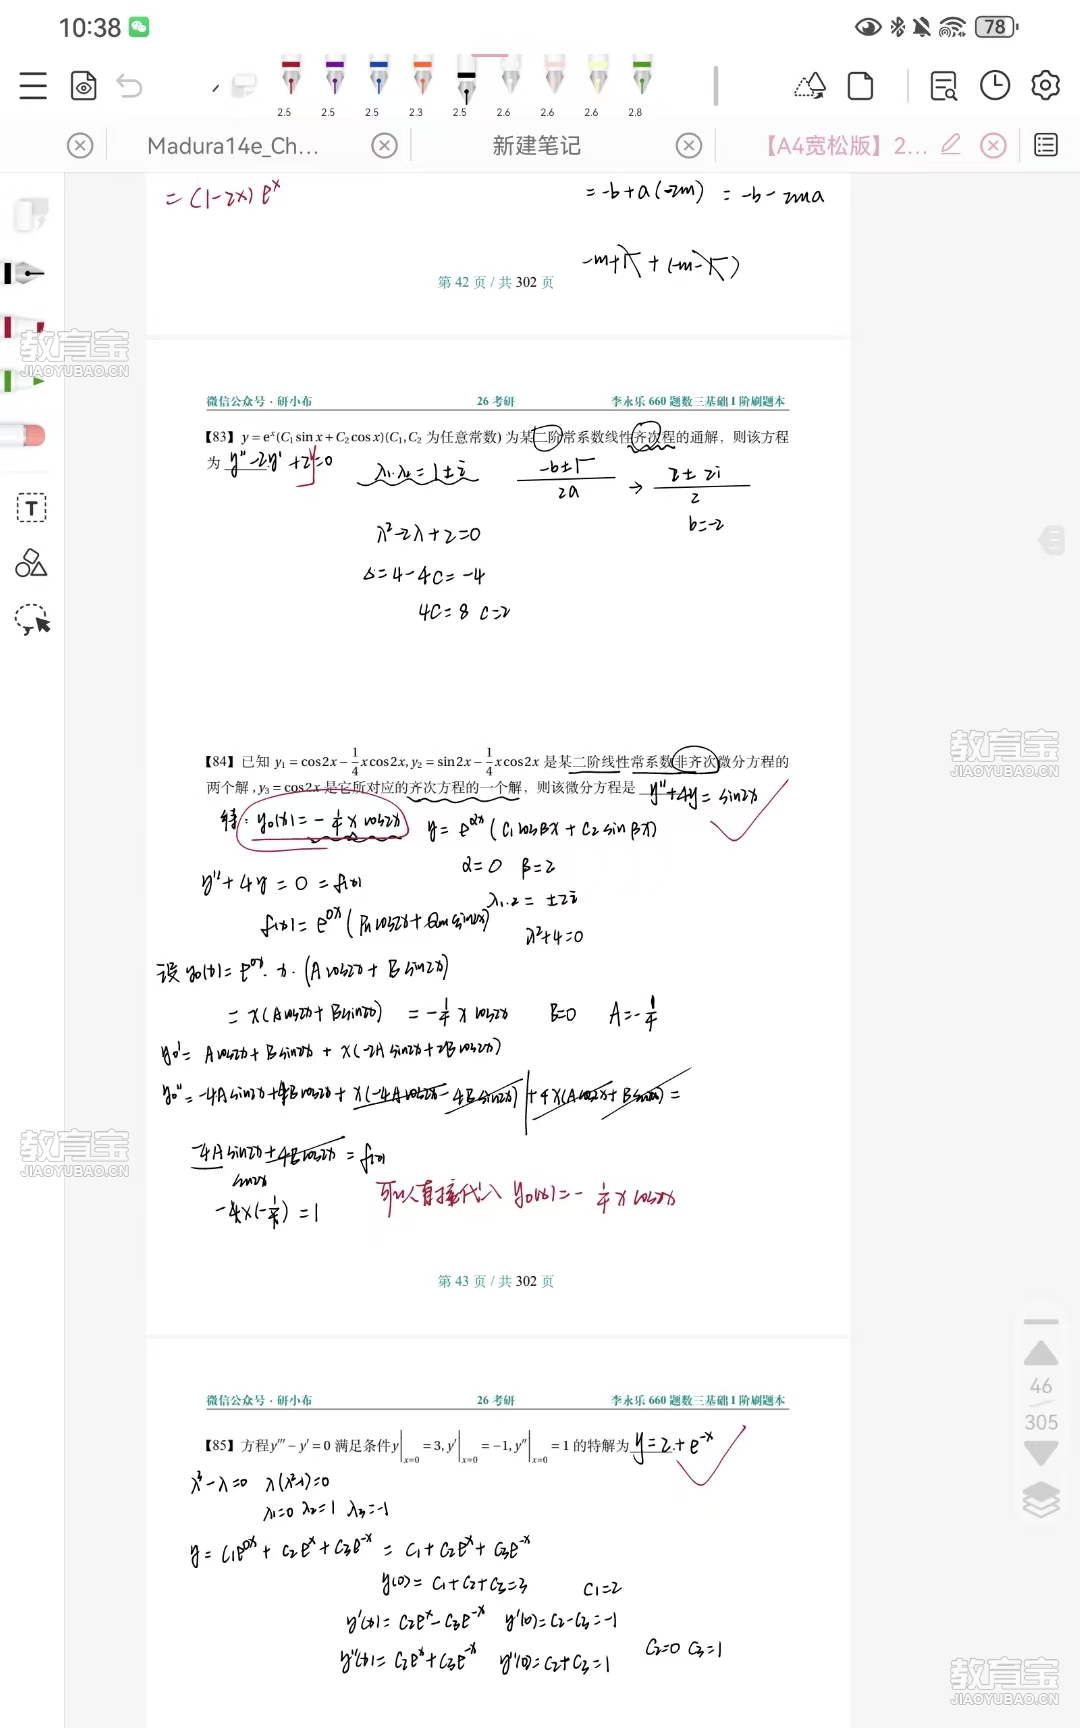 10:38
78
2.5 2.5 2.5 2.3 2.5 2.6 2.6 2.6 2.8
Madura14e_Ch...
新建笔记
【A4宽松版】2...
= (1-2x) e^x
= -b+a(-2m) = -b-2ma
第 42 页 / 共 302 页
教育宝
JIAOYUBAO.CN
微信公众号 · 研小布 26 考研 李永乐 660 题数三基础 I 阶刷题本
【83】y = e^x(C₁ sin x + C₂ cos x)(C₁, C₂ 为任意常数) 为某二阶常系数线性齐次程的通解，则该方程
为 y''-2y'+2y=0
λ₁·λ₂ = 1±i
-b±√ / 2a → 2±2i / 2
b=-2
λ²-2λ+2=0
Δ=4-4c=-4
4c=8 c=2
T
教育宝
JIAOYUBAO.CN
【84】已知 y₁ = cos2x - 1/4 xcos2x, y₂ = sin2x - 1/4 xcos2x 是某二阶线性常系数非齐次微分方程的
两个解, y₃ = cos2x 是它所对应的齐次方程的一个解，则该微分方程是 y''+4y = sin2x
特: y₀(x) = -1/4 x cos2x
y = e^αx (C₁cosβx + C₂sinβx)
α=0 β=2
y''+4y = 0 = f(x)
λ₁.₂ = ±2i
f(x) = e^0x (Pn cos2x + Qm sin2x)
λ²+4=0
设 y₀(x) = e^0x · x · (A cos2x + B sin2x)
= x(Acos2x + Bsin2x) = -1/4 x cos2x B=0 A=-1/4
y₀' = A cos2x + B sin2x + x(-2A sin2x + 2B cos2x)
y₀'' = -4A sin2x + 4B cos2x + x(-4A cos2x - 4B sin2x) + 4x(A cos2x + B sin2x) =
-4A sin2x + 4B cos2x = f(x)
sin2x
-4×(-1/4) = 1
可以直接代入 y₀(x) = -1/4 x cos2x
教育宝
JIAOYUBAO.CN
第 43 页 / 共 302 页
46
305
微信公众号 · 研小布 26 考研 李永乐 660 题数三基础 I 阶刷题本
【85】方程 y''' - y' = 0 满足条件 y|x=0 = 3, y'|x=0 = -1, y''|x=0 = 1 的特解为 y = 2 + e^-x
λ³-λ=0 λ(λ²-1)=0
λ₁=0 λ₂=1 λ₃=-1
y = C₁e^0x + C₂e^x + C₃e^-x = C₁ + C₂e^x + C₃e^-x
y(0) = C₁+C₂+C₃=3 C₁=2
y'(x) = C₂e^x - C₃e^-x y'(0) = C₂-C₃=-1
y''(x) = C₂e^x + C₃e^-x y''(0) = C₂+C₃=1 C₂=0 C₃=1
教育宝
JIAOYUBAO.CN